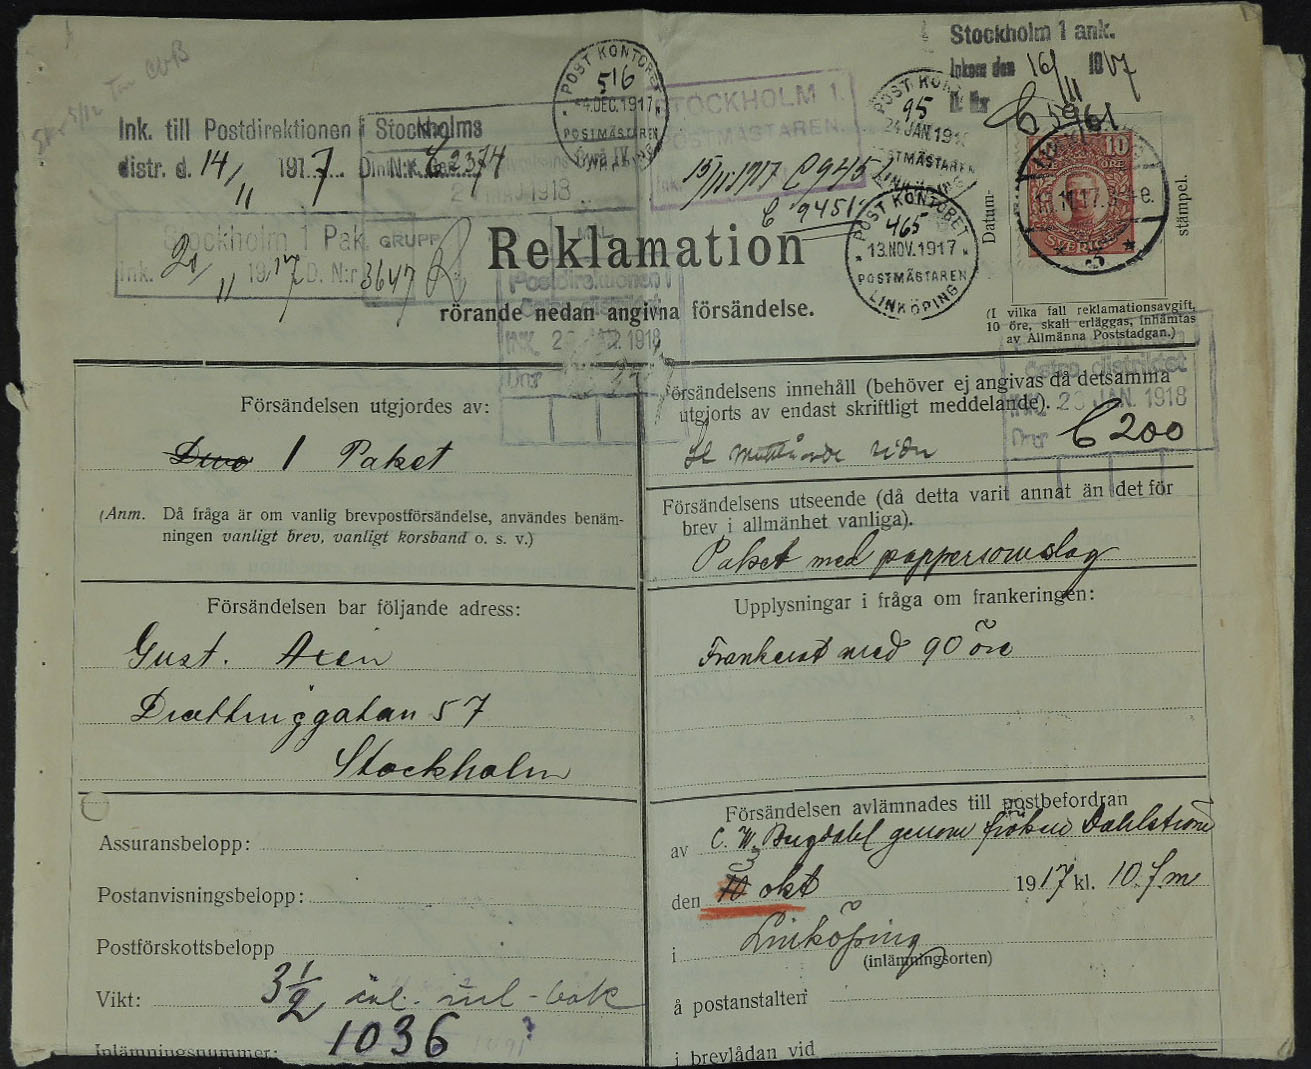 Stockholm 1 ank.
Inkom den 16/11 1917
D. Nr C 5961
POSTKONTORET
516
4. DEC. 1917
POSTMÄSTAREN
LINKÖPING
STOCKHOLM 1.
POSTMÄSTAREN.
15/11 1917 C 9451
C 9451
POSTKONTORET
95
24 JAN. 191
POSTMÄSTAREN
LINKÖPING
POSTKONTORET
465
13. NOV. 1917
POSTMÄSTAREN
LINKÖPING
Ink. till Postdirektionen i Stockholms
distr. d. 14/11 1917 D. N:r C 2374
Stockholm 1 Pak.
Ink. 21/11 1917 D. N:r 3647
GRUPP
Datum-
stämpel.
10
ÖRE
SVERIGE
13.11.17.
Reklamation
rörande nedan angivna försändelse.
(I vilka fall reklamationsavgift,
10 öre, skall erläggas, inhämtas
av Allmänna Poststadgan.)
Postdirektionen i
Östra distriktet
INK. 1918
Dnr
Östra distriktet
INK. JAN. 1918
Dnr C 200
Försändelsen utgjordes av:
1 Paket
(Anm. Då fråga är om vanlig brevpostförsändelse, användes benäm-
ningen vanligt brev, vanligt korsband o. s. v.)
Försändelsens innehåll (behöver ej angivas då detsamma
utgjorts av endast skriftligt meddelande).
Försändelsens utseende (då detta varit annat än det för
brev i allmänhet vanliga).
Paket med pappersomslag
Försändelsen bar följande adress:
Gust. Axén
57
Stockholm
Upplysningar i fråga om frankeringen:
Frankerat med 90 öre
Assuransbelopp:
Postanvisningsbelopp:
Postförskottsbelopp
Vikt: 3 1/2
Inlämningsnummer: 1036
Försändelsen avlämnades till postbefordran
av C. W. genom fröken Dahlström
den okt 1917 kl. 10 f m
i Linköping
(inlämningsorten)
å postanstalten
i brevlådan vid